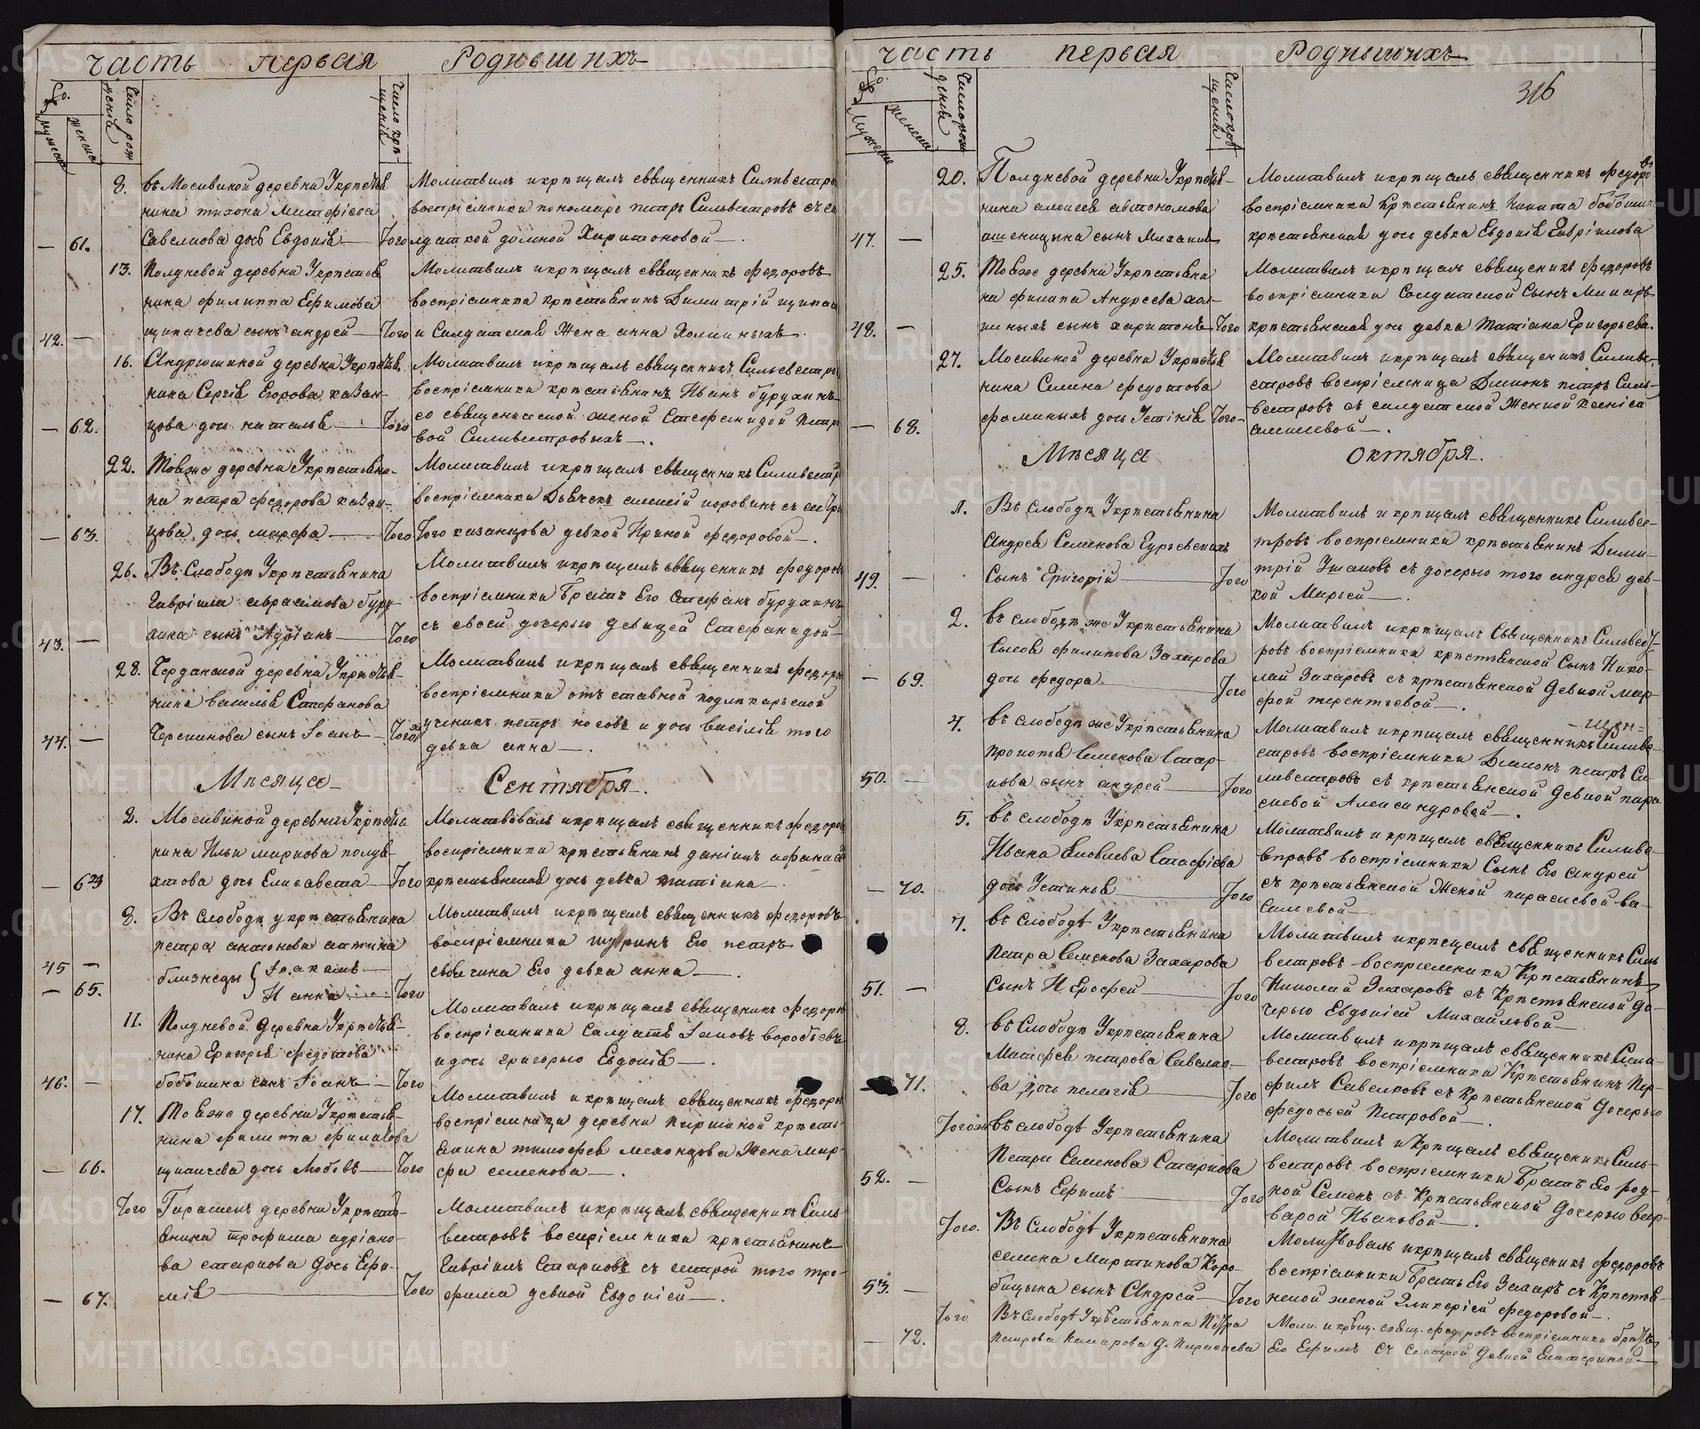 часть первая Родившихъ
№. мужеска женска
Число рождения
Число крещения
8. въ Мосивиной деревни Укрестья
нина тихона Матѳіева
— 61. Савелкова дочь Евдокія — Того
Молитвилъ икрещалъ священникъ Сильвестръ
воспріемники пономарь петръ Сильвестровъ съ со
лдаткой домной Харитоновой —.
13. Полдневой деревни Укрестья
нина филиппа Ефимова
42. — щипачева сынъ андрей — Того
Молитвилъ икрещалъ священникъ федоровъ
воспріемники крестьянинъ Димитрій щипач
и Солдатская Жена анна Холкиныхъ.
16. Андрюшиной деревни Укрестья
нина Сергѣя Егорова казан-
— 62. цова дочь наталья — Того
Молитвилъ икрещалъ священникъ Сильвестръ
воспріемники крестьянинъ Иванъ бурдинъ
со священнической женой Стефанидой Петро
вой Силивестровыхъ —.
22. Тояже деревни Укрестьяни-
на петра федорова казан-
— 63. цова дочь марфа — Того
Молитвилъ икрещалъ священникъ Силивестр
воспріемники Дьячекъ алексій коровинъ съ сестр
Того казанцова девкой Ириной федоровой —.
26. Въ Слободе Укрестьянина
Гавріила абрамова буру
43. — хина сынъ Адріанъ — Того
Молитвилъ икрещалъ священникъ федоровъ
воспріемники Братъ Его Стефанъ бурухинъ
съ своей дочерью девицей Стефанидой —
28. Черданской деревни Укрестья
нина василья Стефанова
44. — Черепанова сынъ Іоанъ — Того
Молитвилъ икрещалъ священникъ федоровъ
воспріемники отъ ставной подлекарьской
ученикъ петръ носовъ и дочь василія того
девка анна —.
Месяца Сентября.
2. Мосивиной деревни Укрестья
нина Ильи маркова полуе-
— 64 ктова дочь Елисавета — Того
Молитвовалъ икрещалъ священникъ федоров
воспріемники крестьянинъ даніилъ афанасі
крестьянская дочь девка татіана —
8. Въ Слободе укрестьянина
петра антонова
45 — близнецы { Іоакимъ —
— 65. И анна — Того
Молитвилъ икрещалъ священникъ федоровъ
воспріемники шуринъ Его петръ
своячина Его девка анна —.
11. Полдневой деревни Укрестья-
нина Григорья федотова
46. — бобошина сынъ Іоанъ — Того
Молитвилъ икрещалъ священникъ федоров
воспріемники Салдатъ Іаковъ воробьевъ
идочь григорью Евдокія —.
17. Тояже деревни Укрестья
нина филиппа филатова
— 66. щипачева дочь Любовь — Того
Молитвилъ икрещалъ священникъ федоров
воспріемница деревни паршиной кресть
янина тимофея мехонцова Жена мар-
фа семенова —.
Того Гарашенъ деревни Укресть-
янина трофима адріано-
ва старкова дочь Ефи-
— 67. мія — Того
Молитвилъ икрещалъ священникъ Силь-
вестровъ воспріемники крестьянинъ
Гавріилъ Старковъ съ сестрой того тро-
фима девкой Евдокіей —.
часть первая Родившихъ
316
№. Мужеска Женска
Число рождения
Число крещения
20. Полдневой деревни Укрестья-
нина алексея автономова
47. — пшеницына сынъ Михаилъ
Молитвилъ икрещалъ священникъ федоровъ
воспріемники Крестьянинъ Никита бобошин
крестьянская дочь девка Евдокія Гавріилова
25. Тояже деревни Укрестьяни
на филипа Андреева хол-
48. — киныхъ сынъ харитонъ — Того
Молитвилъ икрещалъ священникъ федоровъ
воспріемники Солдатской Сынъ Макаръ
крестьянская дочь девка Татіана Григорьева.
27. Мосивиной деревни Укрестья
нина Семена федотова
— 68. фоминыхъ дочь Устинія Того —
Молитвилъ икрещалъ священникъ Силиве-
стровъ воспріемница Дьяконъ петръ Силь-
вестровъ съ салдатской Женкой Ксеніей
алексеевой —.
Месяца октября.
1. Въ Слободе Укрестьянина
Андрея Семенова Гурьевскихъ
49. — Сынъ Григорій — Того
Молитвилъ икрещалъ священникъ Силивес-
тровъ воспріемники крестьянинъ Дими-
трій Ушаковъ съ дочерью того андрея дев-
кой Марьей —.
2. въ слободе же Укрестьянина
Сысоя филипова Захарова
— 69. дочь федора — Того
Молитвилъ икрещалъ Священникъ Сильвест-
ровъ воспріемники крестьянской Сынъ Нико-
лай Захаровъ съ крестьянской девкой мар-
фой терентьевой —.
4. въ слободе же Укрестьянина
прокопья Семенова Стар-
50. — кова сынъ андрей — Того
Молитвилъ икрещалъ священникъ Силиве-
стровъ воспріемники Дьяконъ петръ Си-
ливестровъ съ крестьянской девкой пара
скевой Александровой —.
5. въ слободе Укрестьянина
Ивана Стафіева
— 70. дочь Устинья — Того
Молитвилъ икрещалъ священникъ Силиве-
стровъ воспріемники Сынъ Его андрей
съ крестьянской Женой параскевой ва-
сильевой —
7. въ слободѣ Укрестьянина
Петра Семенова Захарова
51. — Сынъ И Ерофей — Того
Молитвилъ икрещалъ священникъ Силь
вестровъ воспріемники Крестьянинъ
Николай Захаровъ съ Крестьянской До-
черью Евдокіей Михайловой —
8. въ Слободе Укрестьянина
Матфея петрова Савелко-
— 71. ва дочь пелагія — Того
Молитвилъ икрещалъ священникъ Силь-
вестровъ воспріемники Крестьянинъ Пор-
филъ Савелковъ съ Крестьянской дочерью
федосьей Петровой —.
Тогоже въ слободѣ Укрестьянина
Петра Семенова Старкова
52. — Сынъ Ефимъ — Того
Молитвилъ икрещалъ священникъ Силь-
вестровъ воспріемники Братъ Его род-
ной Семенъ съ Крестьянской дочерью вар-
варой Ивановой —.
Того. Въ Слободѣ Укрестьянина
семена Мартинова Коро-
53. — бицына сынъ Андрей — Того
Молитвовалъ икрещалъ священникъ федоровъ
воспріемники Братъ Его Захаръ съ Крестья-
нской женой Гликеріей федоровой —
Того Въ Слободѣ Укрестьянина Петра
— 72. петрова Комарова д. Параскева
Моли. икрещ. свящ. федоровъ воспріемники братъ
Его Ефимъ съ Сестрой Девкой Екатериной —